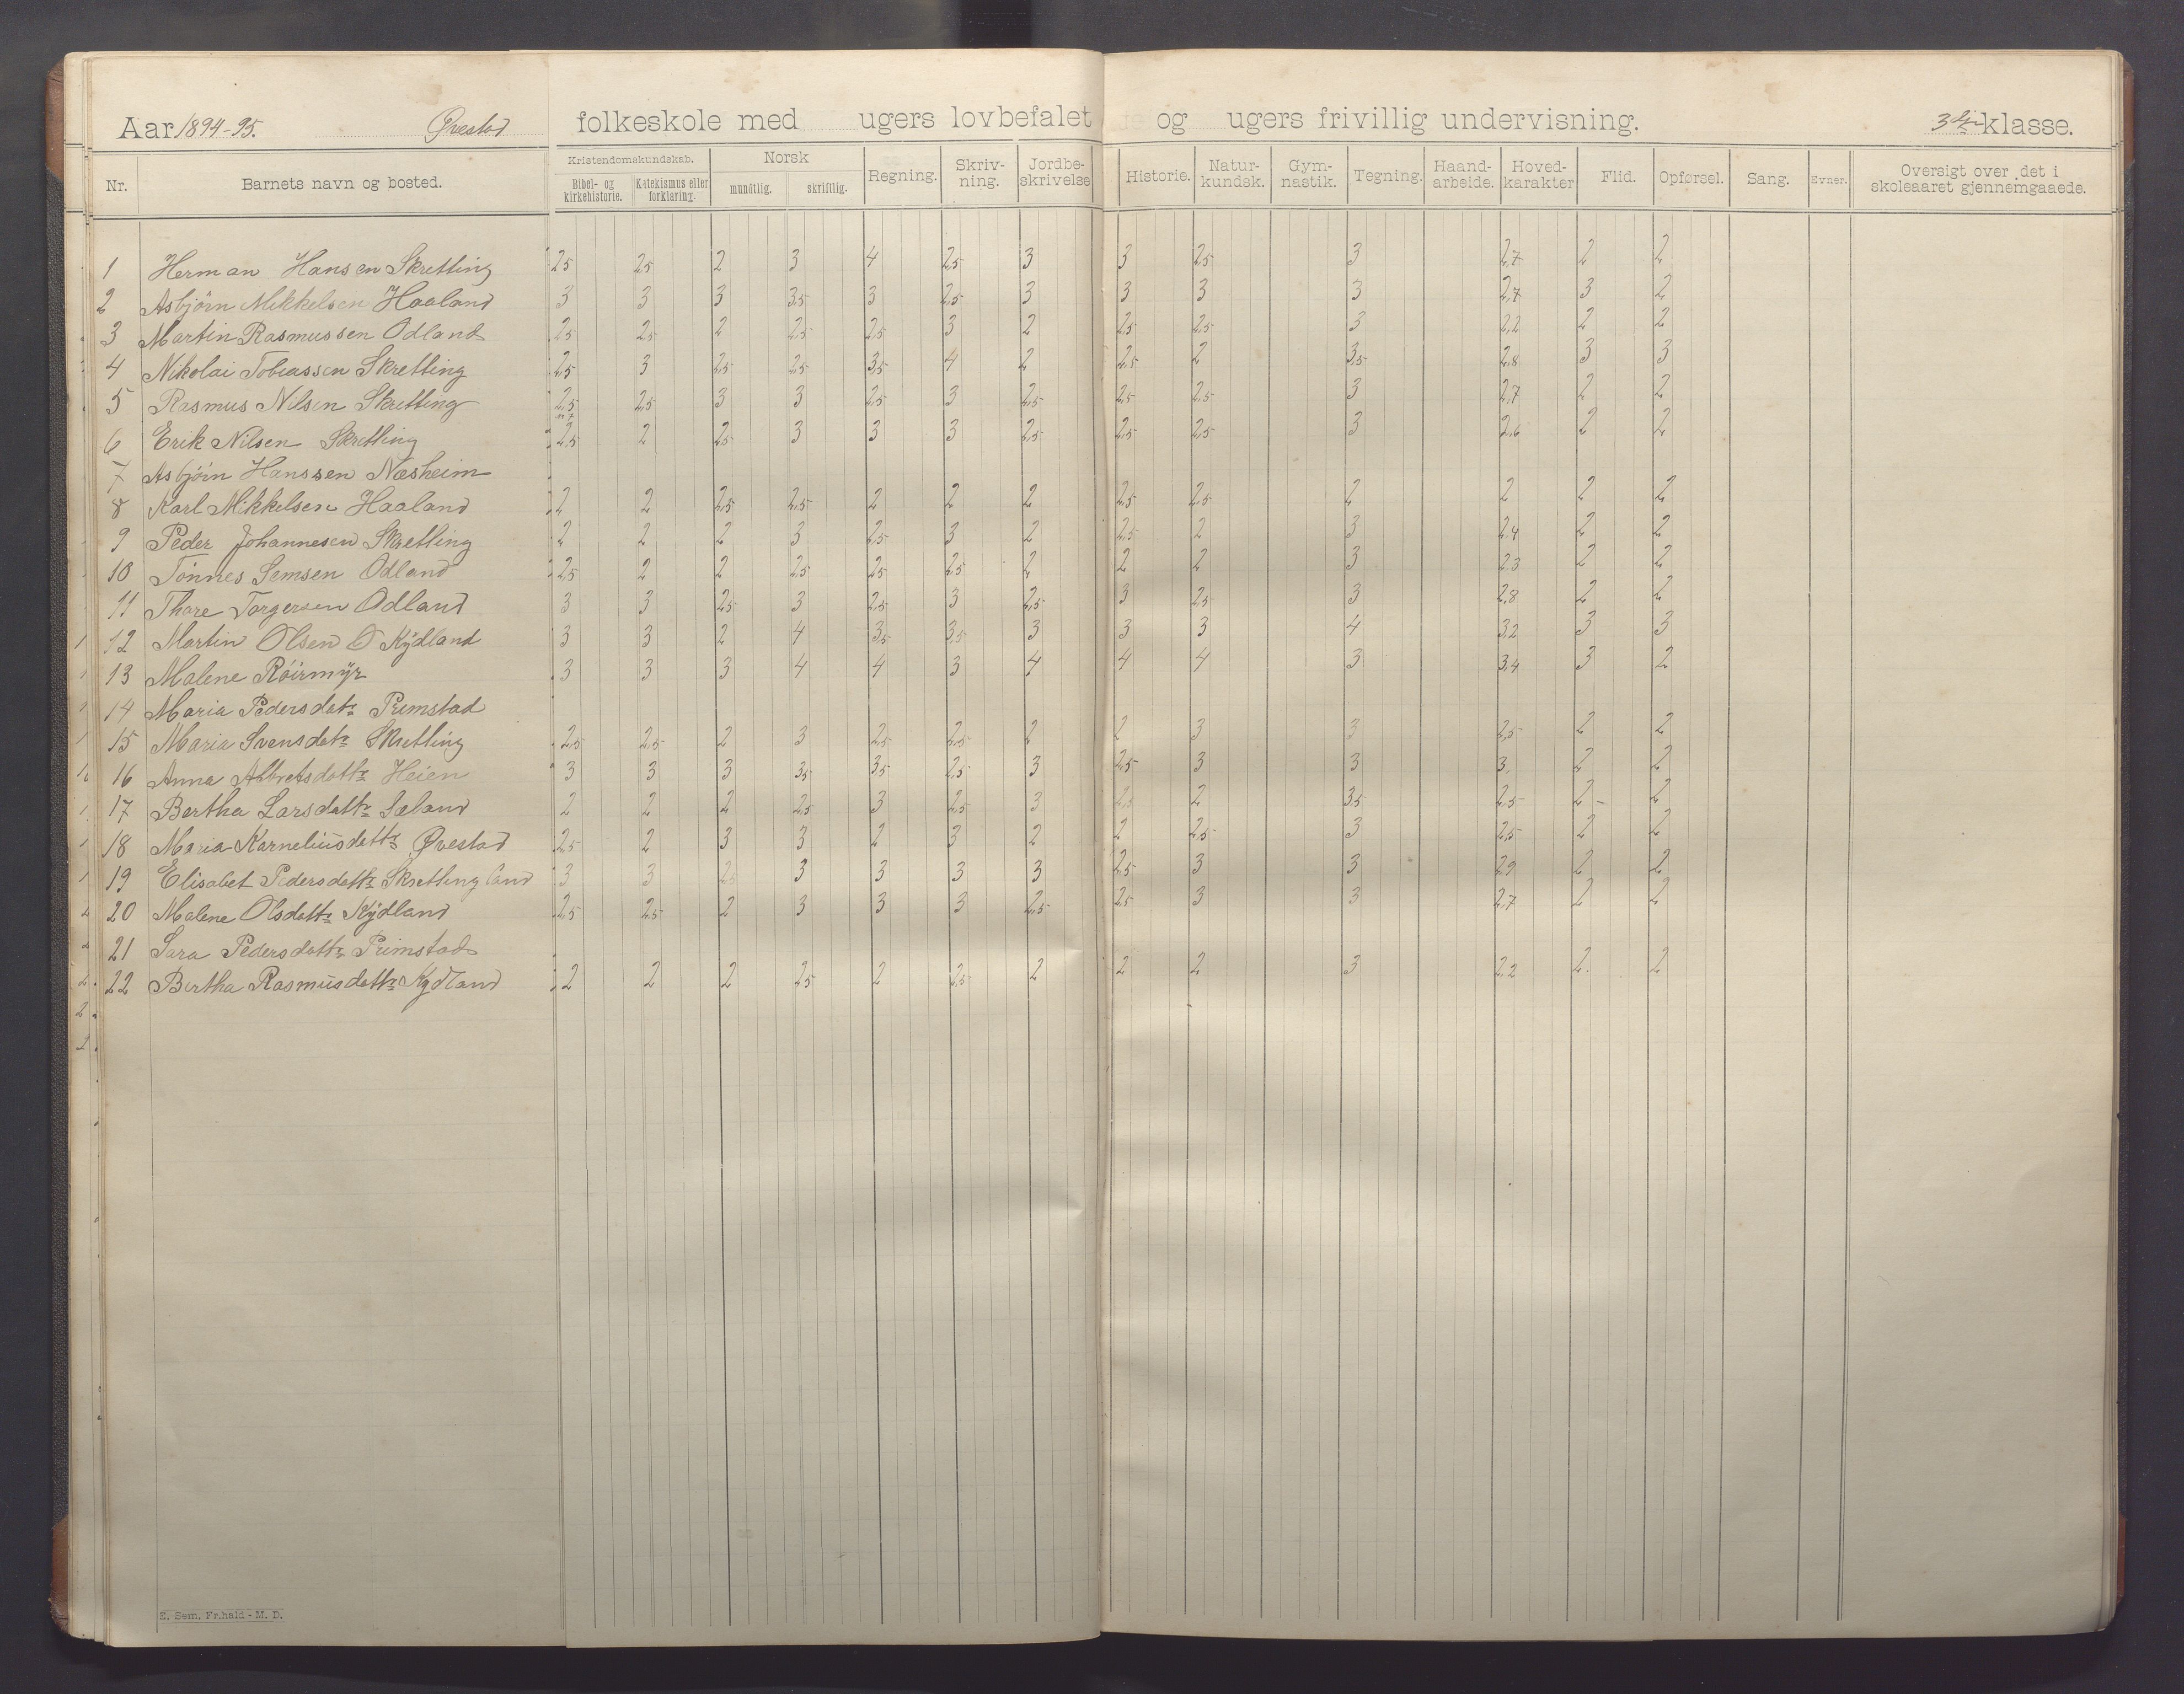 Aar 1894-95. Øvestad folkeskole med ugers lovbefalet og ugers frivillig undervisning. 3die klasse.
Nr. Barnets navn og bosted. Kristendomskundskab. Bibel- og kirkehistorie. Katekismus eller forklaring. Norsk mundtlig. skriftlig. Regning. Skriv-ning. Jordbe-skrivelse Historie. Natur-kundsk. Gym-nastik. Tegning. Haand-arbeide. Hoved-karakter Flid. Opførsel. Sang. Evner. Oversigt over det i skoleaaret gjennemgaaede.
1 Herman Hansen Skretting 2,5 2,5 2 3 4 2,5 3 3 2,5 3 2,7 2 2
2 Asbjörn Mikkelsen Haaland 3 3 3 3,5 3 2,5 3 3 3 3 2,7 3 2
3 Martin Rasmussen Odland 2,5 2,5 2 2,5 2,5 3 2 2,5 2,5 3 2,2 2 2
4 Nikolai Tobiassen Skretting 2,5 3 2,5 2,5 3,5 4 2 2,5 2 3,5 2,8 3 3
5 Rasmus Nilsen Skretting 2,5 2,5 3 3 2,5 3 2,5 2,5 2,5 3 2,7 2 2
6 Erik Nilsen Skretting 2,5 2 2,5 3 3 3 2,5 2,5 2,5 3 2,6 2 2
7 Asbjörn Hanssen Næsheim
8 Karl Mikkelsen Haaland 2 2 2,5 2,5 2 2 2 2,5 2,5 2 2 2 2
9 Peder Johannesen Skretting 2 2 2 3 2,5 3 2 2,5 2 3 2,4 2 2
10 Tönnes Semsen Odland 2,5 2 2 2,5 2,5 2,5 2 2 2 3 2,3 2 2
11 Thore Torgersen Odland 3 3 2,5 3 2,5 3 2,5 3 2,5 3 2,8 2 2
12 Martin Olsen Kÿdland 3 3 2 4 3,5 3,5 3 3 3 4 3,2 3 3
13 Malene Röirmÿr 3 3 3 4 4 3 4 4 4 3 3,4 3 2
14 Maria Pedersdatr Primstad
15 Maria Svensdatr Skretting 2,5 2,5 2 3 2,5 2,5 2 2 3 3 2,5 2 2
16 Anna Abbretsdattr Heien 3 3 3 3,5 3,5 2,5 3 2,5 3 3 3 2 2
17 Bertha Larsdattr Sæland 2 2 2 2,5 3 2,5 3 2,5 2 3,5 2,5 2 2
18 Maria Korneliusdattr Øvestad 2,5 2 3 3 2 3 2 2 2,5 3 2,5 2 2
19 Elisabet Pedersdattr Skrettingland 3 3 2,5 3 3 3 3 2,5 3 3 2,9 2 2
20 Malene Olsdattr Kÿdland 2,5 2,5 2 3 3 3 2,5 2,5 3 3 2,7 2 2
21 Sara Pedersdattr Primstad
22 Bertha Rasmusdattr Kydland 2 2 2 2,5 2 2,5 2 2 2 3 2,2 2 2
E. Sem. Fr.hald - M. D.